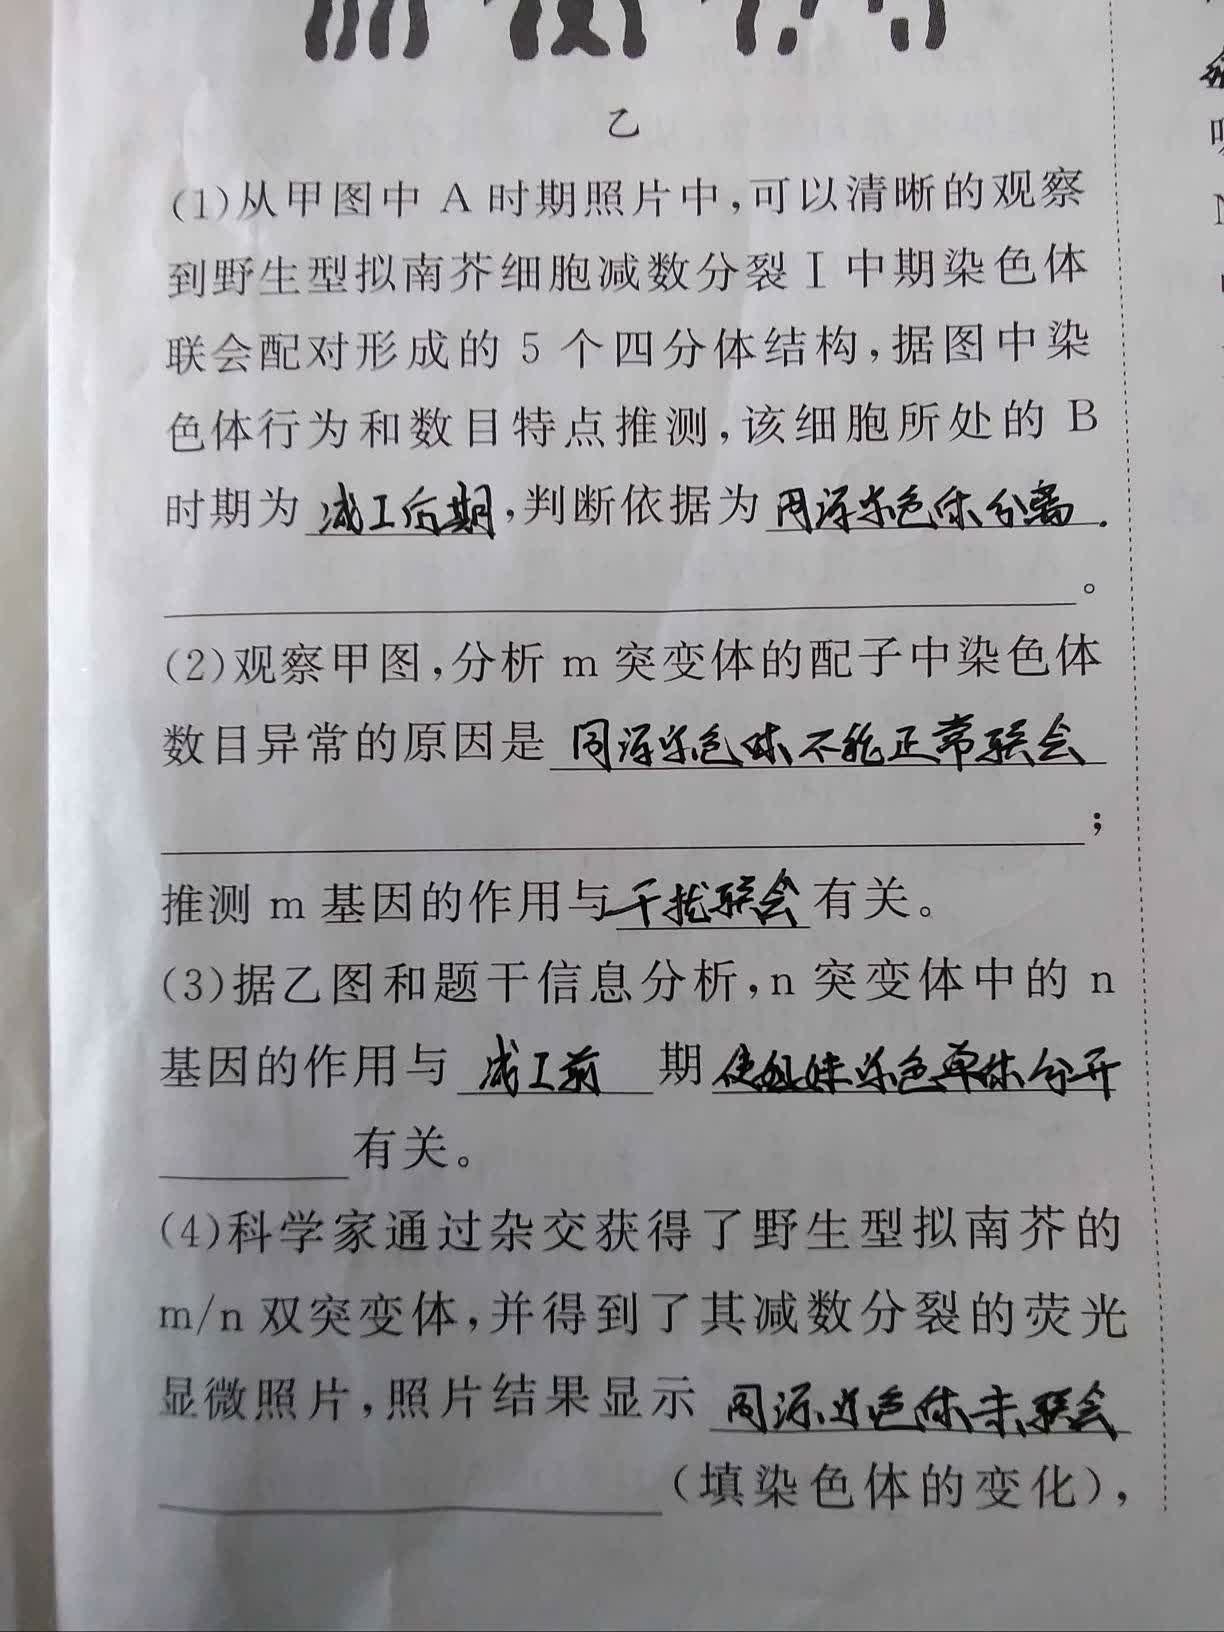 乙
(1)从甲图中 A 时期照片中,可以清晰的观察
到野生型拟南芥细胞减数分裂 I 中期染色体
联会配对形成的 5 个四分体结构,据图中染
色体行为和数目特点推测,该细胞所处的 B
时期为 减I后期,判断依据为 同源染色体分离.
。
(2)观察甲图,分析 m 突变体的配子中染色体
数目异常的原因是 同源染色体不能正常联会
;
推测 m 基因的作用与 干扰联会 有关。
(3)据乙图和题干信息分析,n 突变体中的 n
基因的作用与 减I前 期 使姐妹染色单体分开
有关。
(4)科学家通过杂交获得了野生型拟南芥的
m/n 双突变体,并得到了其减数分裂的荧光
显微照片,照片结果显示 同源染色体未联会
(填染色体的变化),